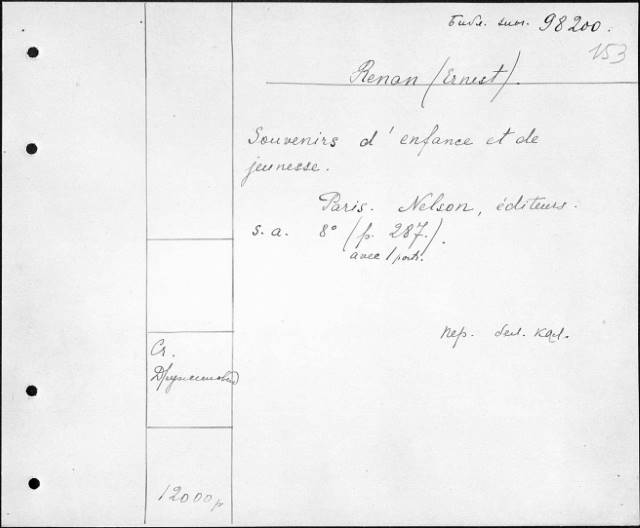 Библ. 98200.
153
Renan (Ernest).
Souvenirs d'enfance et de
jeunesse.
Paris. Nelson, éditeurs.
s. a. 8° (p. 287.).
avec 1 portr.
пер. бел. кал.
Ст.
12000 р